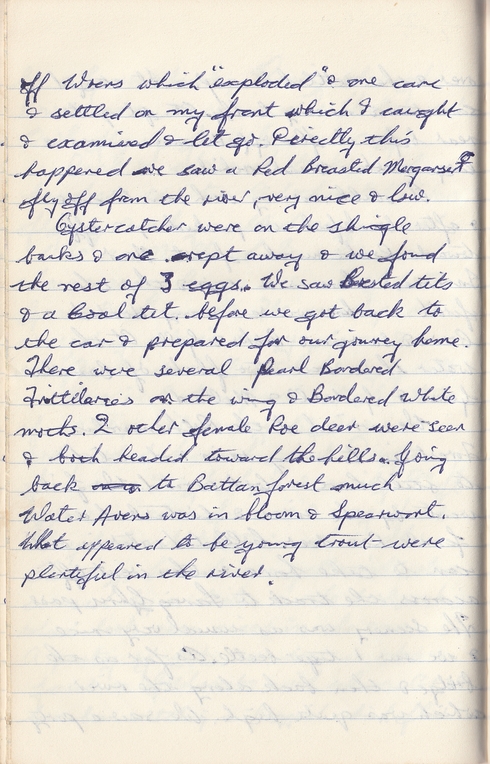 off Wrens which "exploded" & one came
& settled on my front which I caught
& examined & let go. Directly this
happened we saw a Red Breasted Merganser
fly off from the river, very nice & low.
Oystercatcher were on the shingle
banks & one crept away & we found
the rest of 3 eggs. We saw Crested tits
& a Coal tit. before we got back to
the car & prepared for our jouney home.
There were several Pearl Bordered
Frittilaries on the wing & Bordered White
moths. 2 other female Roe deer were seen
& both headed toward the hills. Going
back to Battan forest much
Water Avens was in bloom & Spearwort.
What appeared to be young trout were
plentiful in the river.